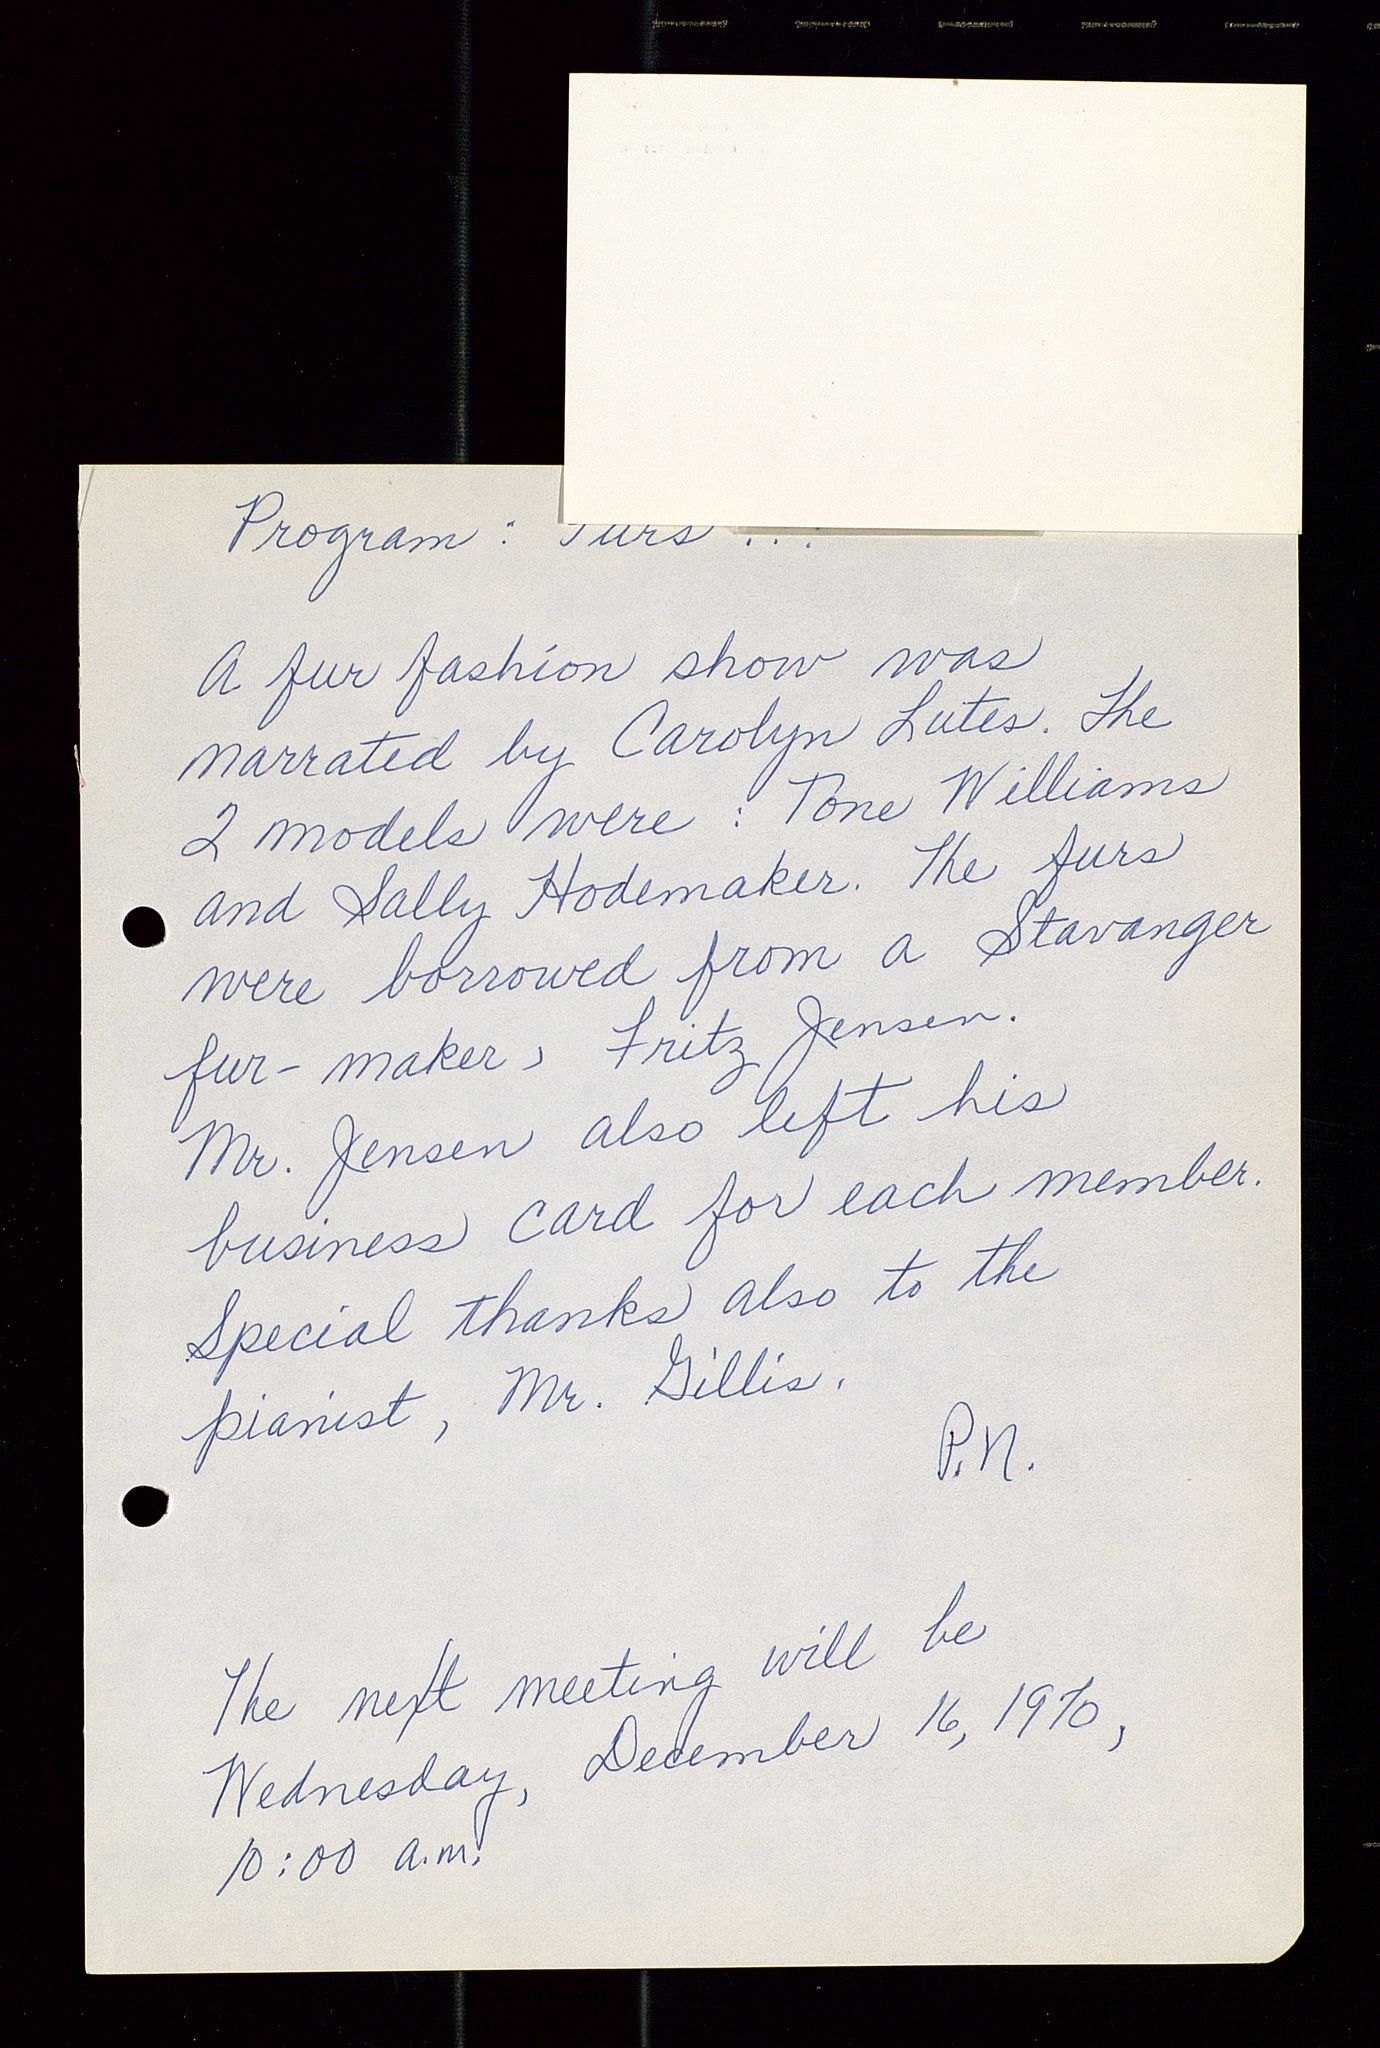 Program: Furs...
A fur fashion show was
narrated by Carolyn Lutes. The
2 models were: Tone Williams
and Sally Hodemaker. The furs
were borrowed from a Stavanger
fur-maker, Fritz Jensen.
Mr. Jensen also left his
business card for each member.
Special thanks also to the
pianist, Mr. Gillis.
P.N.
The next meeting will be
Wednesday, December 16, 1970,
10:00 a.m.